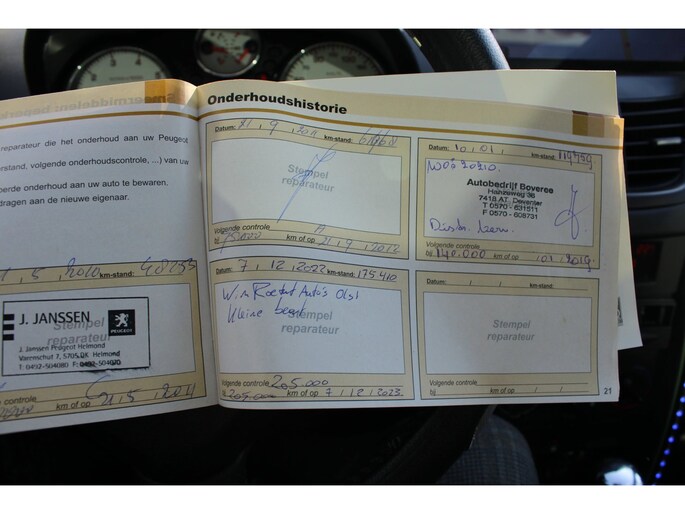 reparateur die het onderhoud aan uw Peugeot
volgende onderhoudscontrole, ...) van uw
oerde onderhoud aan uw auto te bewaren.
dragen aan de nieuwe eigenaar.
5 2010 km-stand: 48233
J. JANSSEN
Stempel
PEUGEOT
J. Janssen Peugeot Helmond
Varenschut 7, 5705 DK Helmond
T: 0492-504080 F: 0492-504070
Volgende controle
km of op 5 2011
Onderhoudshistorie
Datum: 21 , 9 , 2011 km-stand:
Stempel
reparateur
Volgende controle
bij km of op 21 , 9 , 2012
Datum: 10 , 01 , km-stand: 119759
Autobedrijf Boveree
Hanzeweg 36
7418 AT Deventer
T 0570 - 631511
F 0570 - 608731
Volgende controle
bij 140.000 km of op / 01 / 2019
Datum: 7 , 12 , 2022 km-stand: 175410
Wim Roetert Auto's Olst
Kleine beurt
Stempel
reparateur
Volgende controle 205.000
bij 205.000 km of op 7 / 12 / 2023
Datum: / / km-stand:
Stempel
reparateur
Volgende controle
bij km of op / /
21